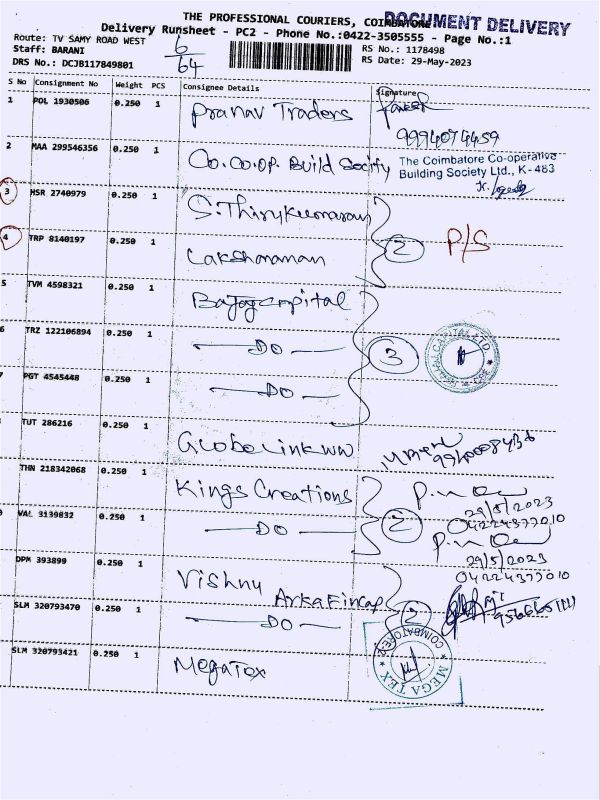 THE PROFESSIONAL COURIERS, COIMBATORE
DOCUMENT DELIVERY
Delivery Runsheet - PC2 - Phone No.:0422-3505555 - Page No.:1
Route: TV SAMY ROAD WEST
6/64
RS No.: 1178498
Staff: BARANI
RS Date: 29-May-2023
DRS No.: DCJB117849801
S No Consignment No Weight PCS Consignee Details Signature
1 POL 1930506 0.250 1 Pranav Traders
9994074459
2 MAA 299546356 0.250 1 Co.Co.op. Build Society
The Coimbatore Co-operative
Building Society Ltd., K-483
3 HSR 2740979 0.250 1 S.Thirukumaran
2 P/S
4 TRP 8140197 0.250 1 Lakshmanan
5 TVM 4598321 0.250 1 Bajaj Capital
6 TRZ 122106894 0.250 1 — DO —
3
BAJAJ CAPITAL LTD.
7 PGT 4545448 0.250 1 — DO —
TUT 286216 0.250 1 Globe Link WW
THN 218342068 0.250 1 Kings Creations
29/5/2023
04224377010
VAL 3139832 0.250 1 — DO —
2
29/5/2023
04224377010
DPM 393899 0.250 1 Vishnu Arka Fincap
SLM 320793470 0.250 1 — DO —
2
SLM 320793421 0.250 1 Megatex
MEGA TEX
COIMBATORE-2